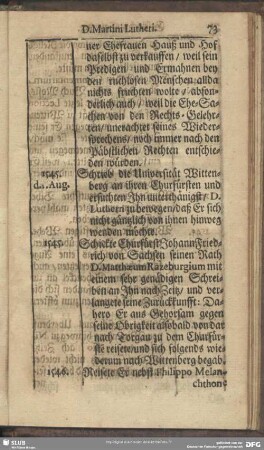 D. Martini Lutheri. 73
ner Ehefrauen Hauß und Hof
daselbst zu verkauffen / weil sein
Predigen und Ermahnen bey
den ruchlosen Menschen allda
nichts fruchten wolte / abson-
derlich auch / weil die Ehe-Sa-
chen von den Rechts-Gelehr-
ten / unerachtet seines Wieder-
sprechens / noch immer nach den
Päbstlichen Rechten entschie-
den würden.
1545. Schrieb die Universität Witten-
d. 1. Aug. berg an ihren Churfürsten und
ersuchten Ihn unterthänigst / D.
Luthern zu bewegen / daß Er sich
nicht gäntzlich von ihnen hinweg
wenden möchte.
1545. Schickte Churfürst Johann Fried-
rich von Sachsen seinen Rath
D. Matthæum Razeburgium mit
einem sehr genädigen Schrei-
ben an Ihn nach Zeitz / und ver-
langete seine Zurückkunfft: Da-
hero Er aus Gehorsam gegen
seine Obrigkeit alsobald von dar
nach Torgau zu dem Churfür-
sten reisete / und sich folgends wie-
derum nach Wittenberg begab.
1546. Reisete Er nebst Philippo Melan-
chthon
SLUB
DFG